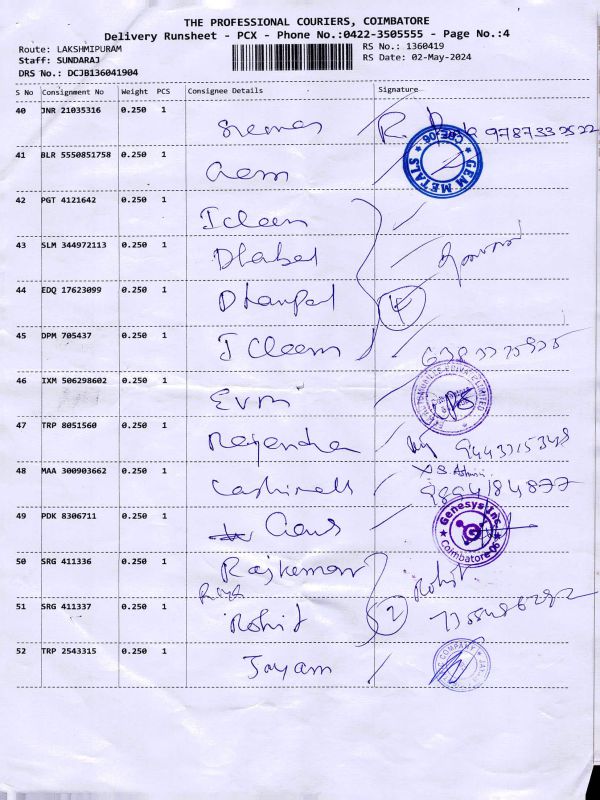 THE PROFESSIONAL COURIERS, COIMBATORE
Delivery Runsheet - PCX - Phone No.:0422-3505555 - Page No.:4
Route: LAKSHMIPURAM
RS No.: 1360419
Staff: SUNDARAJ
RS Date: 02-May-2024
DRS No.: DCJB136041904
S No Consignment No Weight PCS Consignee Details Signature
40 JNR 21035316 0.250 1
9787332522
41 BLR 5550851758 0.250 1 Gem
GEM METALS CBE-06
42 PGT 4121642 0.250 1 I Cleen
43 SLM 344972113 0.250 1
44 EDQ 17623099 0.250 1 Dhanpal 4
45 DPM 705437 0.250 1 I Cleem
46 IXM 506298602 0.250 1 Evm
47 TRP 8051560 0.250 1 Rajendra
48 MAA 300903662 0.250 1
9894184877
49 PDK 8306711 0.250 1
Genesys Inc Coimbatore 06
50 SRG 411336 0.250 1 Rajkumar Rohit
51 SRG 411337 0.250 1 Rohit 2
52 TRP 2543315 0.250 1 Jayam